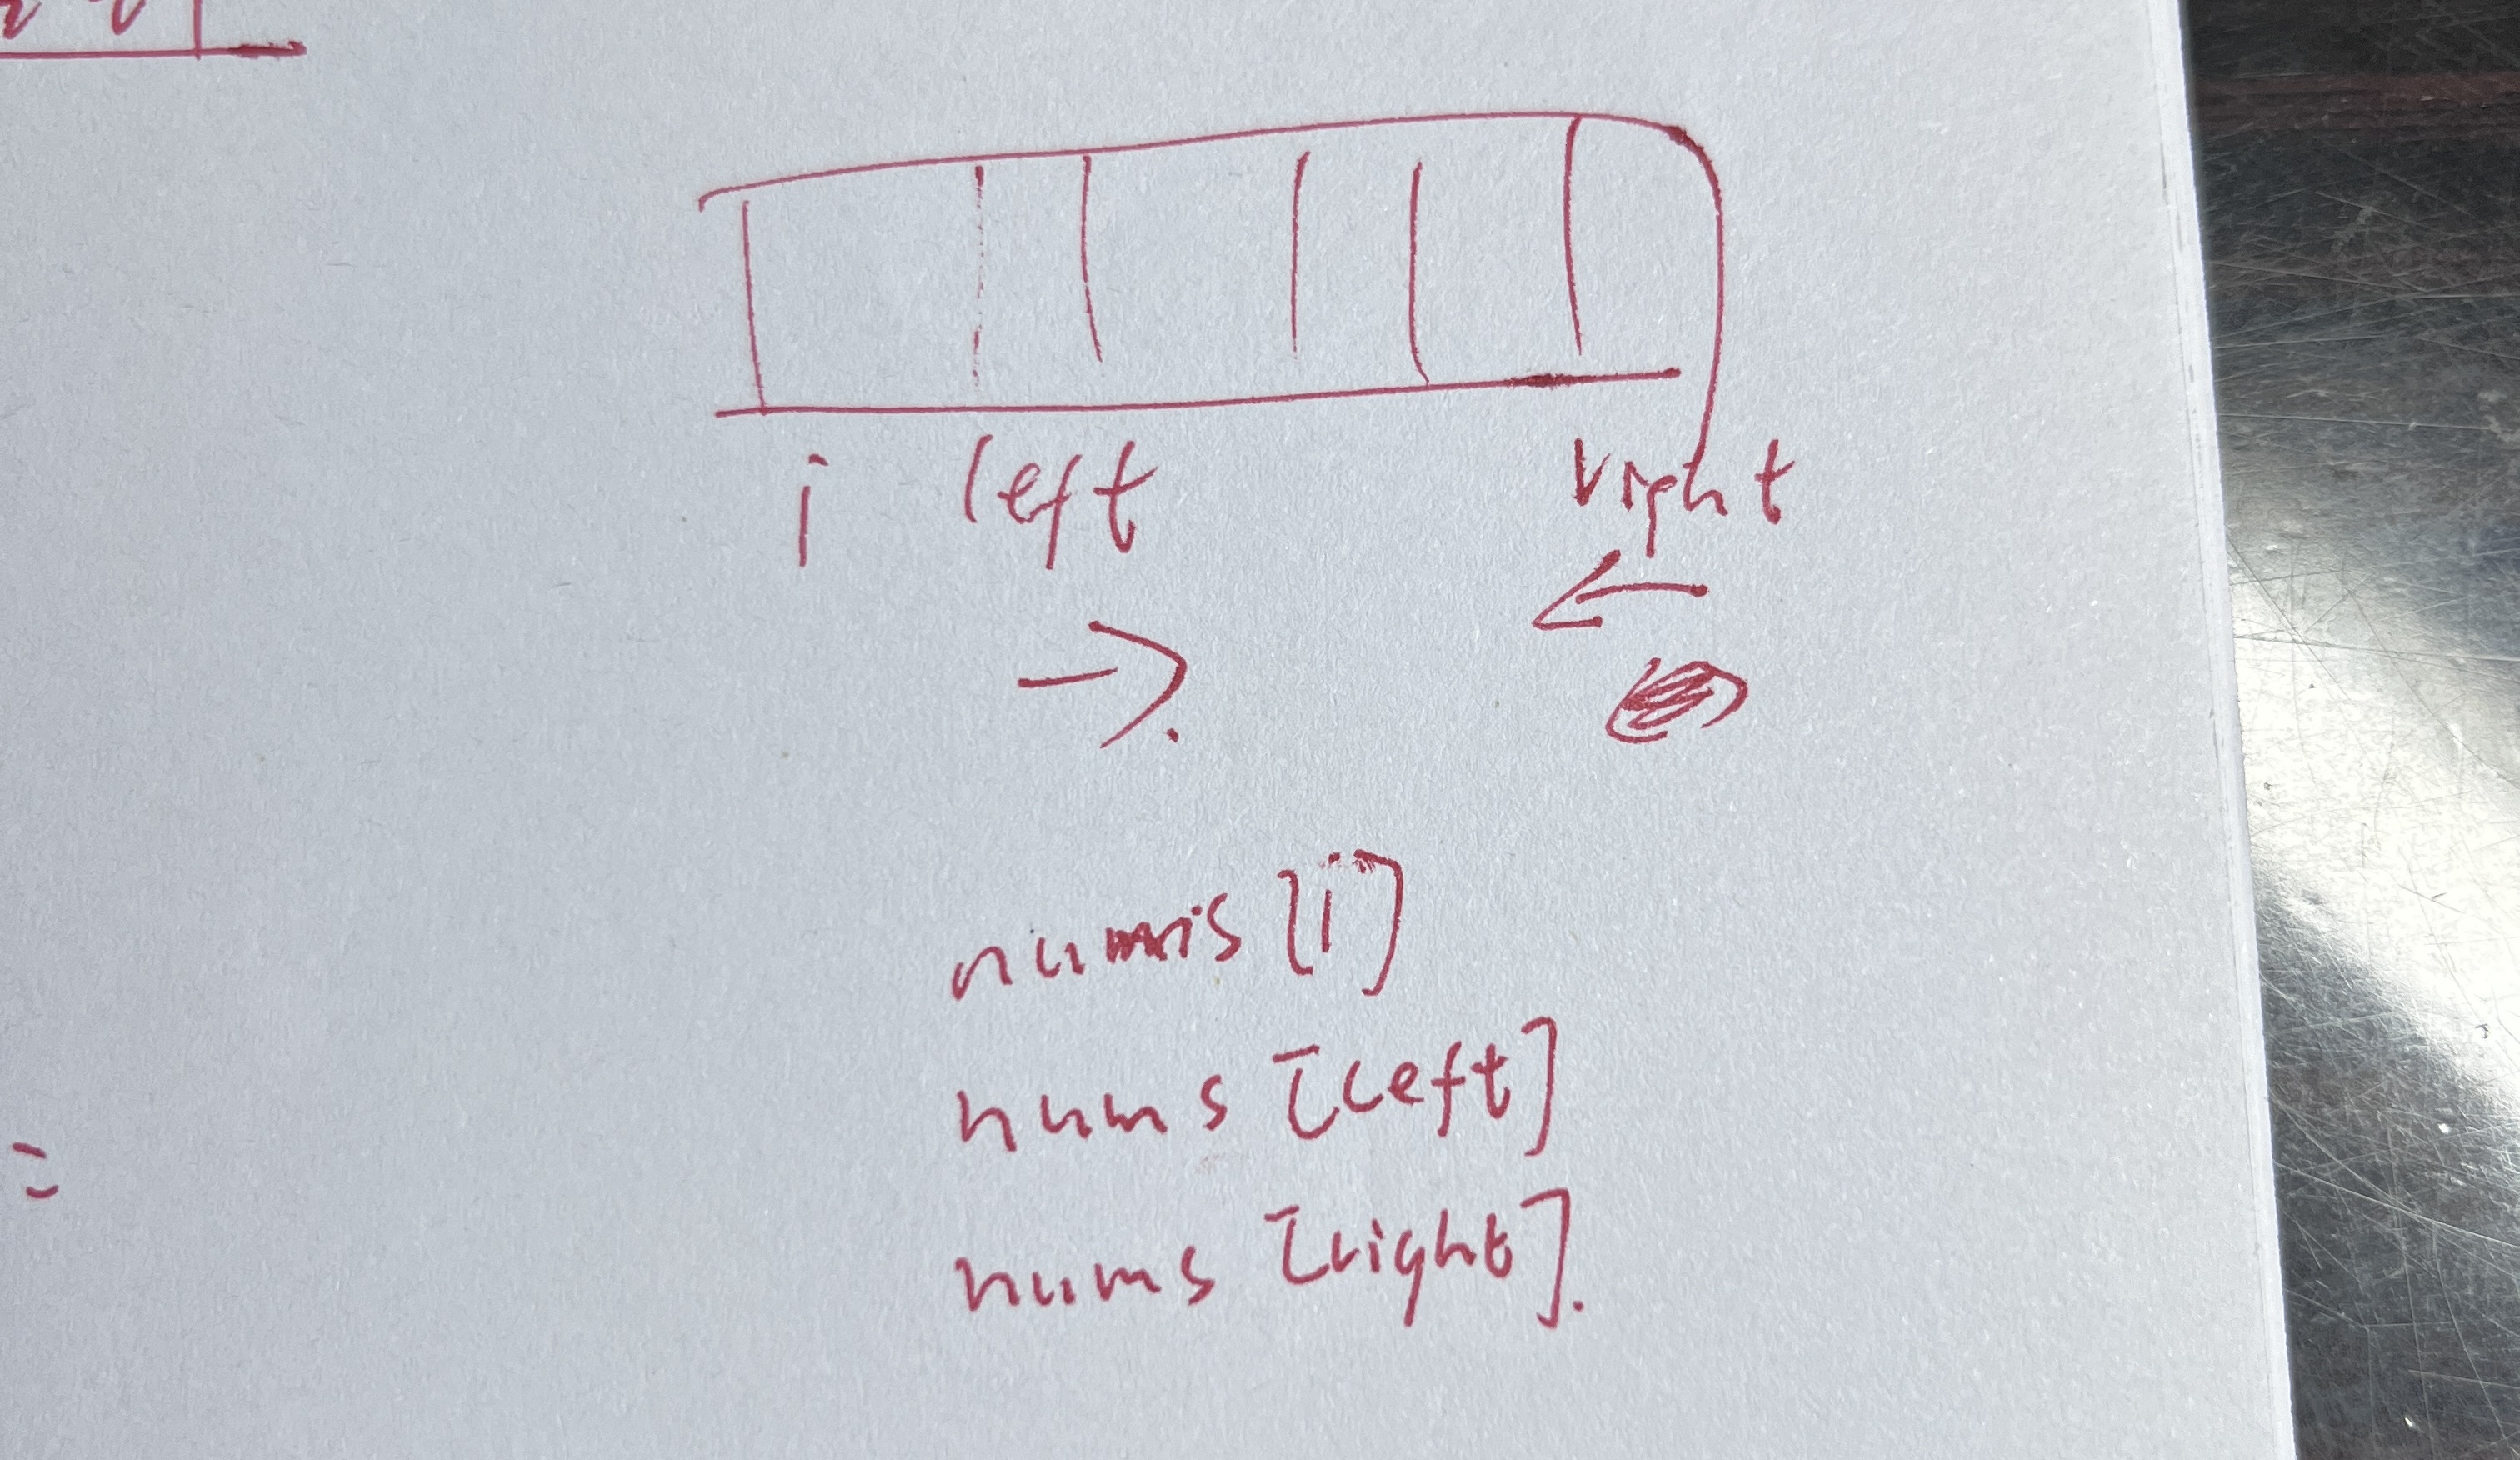 i left right
nums [i]
nums [left]
nums [right].
=